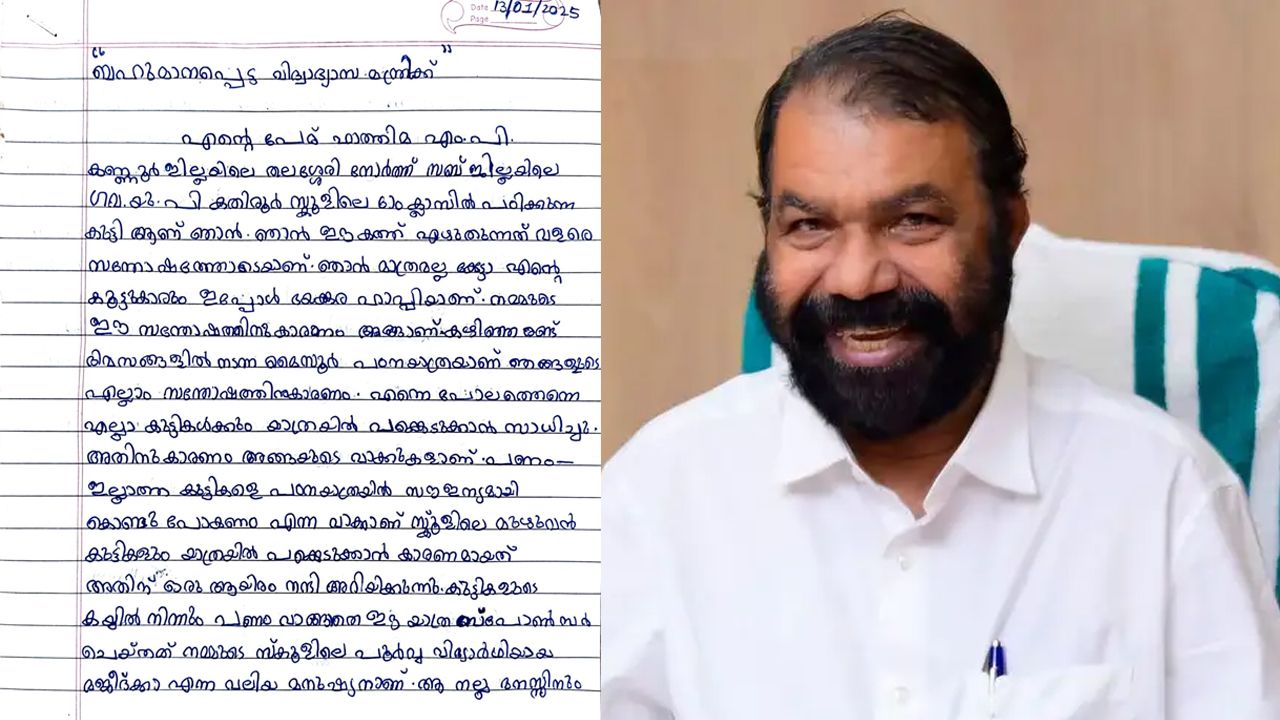 Date 13/01/2025
Page
"ബഹുമാനപ്പെട്ട വിദ്യാഭ്യാസ മന്ത്രിക്ക്"
എന്റെ പേര് ഫാത്തിമ എം.പി.
കണ്ണൂർ ജില്ലയിലെ തലശ്ശേരി നോർത്ത് സബ് ജില്ലയിലെ
ഗവ.യു.പി കതിരൂർ സ്കൂളിലെ ക്ലാസിൽ പഠിക്കുന്ന
കുട്ടി ആണ് ഞാൻ. ഞാൻ ഈ കത്ത് എഴുതുന്നത് വളരെ
സന്തോഷത്തോടെയാണ്. ഞാൻ മാത്രമല്ല കേട്ടോ എന്റെ
കൂട്ടുകാരും ഇപ്പോൾ ഭയങ്കര ഹാപ്പിയാണ്. നമ്മുടെ
ഈ സന്തോഷത്തിനുകാരണം അങ്ങാണ്. കഴിഞ്ഞ രണ്ട്
ദിവസങ്ങളിൽ നടന്ന മൈസൂർ പഠനയാത്രയാണ് ഞങ്ങളുടെ
എല്ലാം സന്തോഷത്തിനുകാരണം. എന്നെ പോലത്തെന്നെ
എല്ലാ കുട്ടികൾക്കും യാത്രയിൽ പങ്കെടുക്കാൻ സാധിച്ചു.
അതിനുകാരണം അങ്ങയുടെ വാക്കുകളാണ്. പണം-
ഇല്ലാത്ത കുട്ടികളെ പഠനയാത്രയിൽ സൗജന്യമായി
കൊണ്ടു പോഷണം എന്ന വാക്കാണ് സ്കൂളിലെ മുഴുവൻ
കുട്ടികളും യാത്രയിൽ പങ്കെടുക്കാൻ കാരണമായത്
അതിന് ഒരു ആയിരം നന്ദി അറിയിക്കുന്നു. കുട്ടികളുടെ
കയ്യിൽ നിന്നും പണം വാങ്ങാതെ ഈ യാത്ര സ്പോൺസർ
ചെയ്തത് നമ്മുടെ സ്കൂളിലെ പൂർവ്വ വിദ്യാർഥിയായ
മജീദ്ക്കാ എന്ന വലിയ മനുഷ്യനാണ്. ആ നല്ല മനസ്സിനും